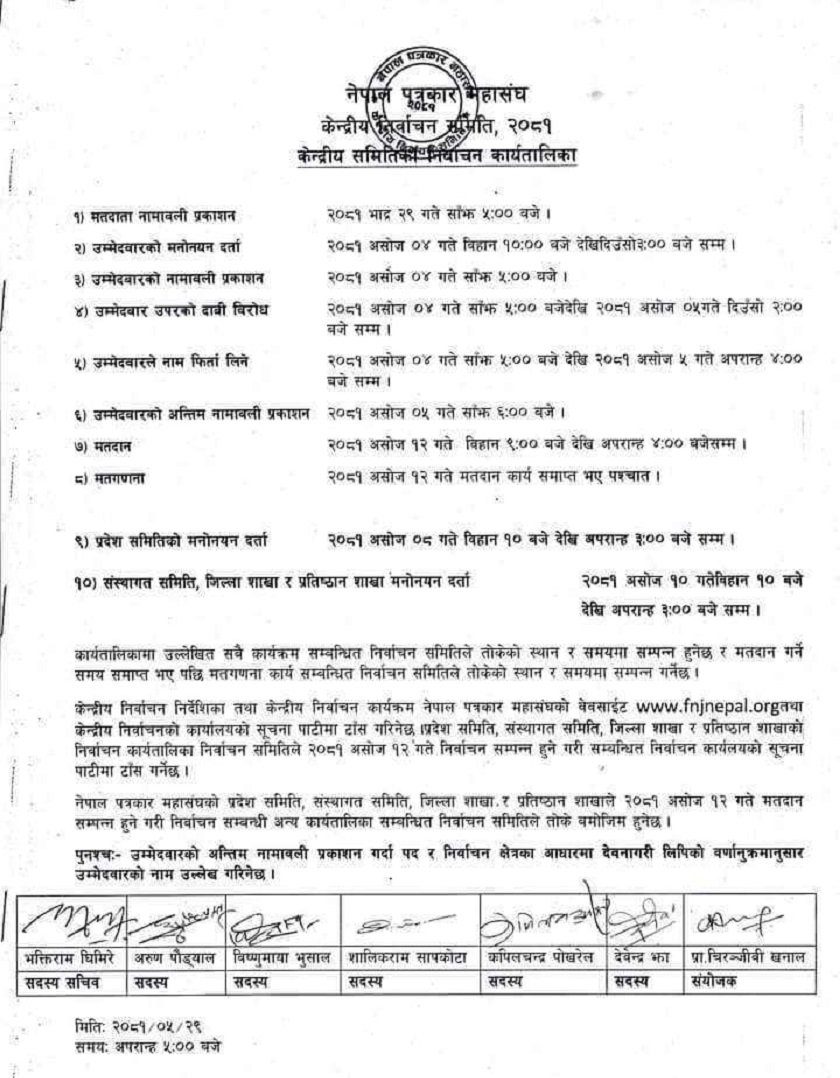 नेपाल पत्रकार महासंघ
२०८१
नेपाल पत्रकार महासंघ
केन्द्रीय निर्वाचन समिति, २०८१
केन्द्रीय समितिको निर्वाचन कार्यतालिका
१) मतदाता नामावली प्रकाशन २०८१ भाद्र २९ गते साँझ ५:०० बजे ।
२) उम्मेदवारको मनोनयन दर्ता २०८१ असोज ०४ गते विहान १०:०० बजे देखिदिउँसो३:०० बजे सम्म ।
३) उम्मेदवारको नामावली प्रकाशन २०८१ असोज ०४ गते साँझ ५:०० बजे ।
४) उम्मेदवार उपरको दावी विरोध २०८१ असोज ०४ गते साँझ ५:०० बजेदेखि २०८१ असोज ०५गते दिउँसो २:००
बजे सम्म ।
५) उम्मेदवारले नाम फिर्ता लिने २०८१ असोज ०४ गते साँझ ५:०० बजे देखि २०८१ असोज ५ गते अपरान्ह ४:००
बजे सम्म ।
६) उम्मेदवारको अन्तिम नामावली प्रकाशन २०८१ असोज ०५ गते साँझ ६:०० बजे ।
७) मतदान २०८१ असोज १२ गते विहान ९:०० बजे देखि अपरान्ह ४:०० बजेसम्म ।
८) मतगणना २०८१ असोज १२ गते मतदान कार्य समाप्त भए पश्चात ।
९) प्रदेश समितिको मनोनयन दर्ता २०८१ असोज ०८ गते विहान १० बजे देखि अपरान्ह ३:०० बजे सम्म ।
१०) संस्थागत समिति, जिल्ला शाखा र प्रतिष्ठान शाखा मनोनयन दर्ता २०८१ असोज १० गतेविहान १० बजे
देखि अपरान्ह ३:०० बजे सम्म ।
कार्यतालिकामा उल्लेखित सवै कार्यक्रम सम्बन्धित निर्वाचन समितिले तोकेको स्थान र समयमा सम्पन्न हुनेछ र मतदान गर्ने
समय समाप्त भए पछि मतगणना कार्य सम्वन्धित निर्वाचन समितिले तोकेको स्थान र समयमा सम्पन्न गर्नेछ ।
केन्द्रीय निर्वाचन निर्देशिका तथा केन्द्रीय निर्वाचन कार्यक्रम नेपाल पत्रकार महासंघको वेवसाईट www.fnjnepal.orgतथा
केन्द्रीय निर्वाचनको कार्यालयको सूचना पाटीमा टाँस गरिनेछ ।प्रदेश समिति, संस्थागत समिति, जिल्ला शाखा र प्रतिष्ठान शाखाको
निर्वाचन कार्यतालिका निर्वाचन समितिले २०८१ असोज १२ गते निर्वाचन सम्पन्न हुने गरी सम्वन्धित निर्वाचन कार्यलयको सूचना
पाटीमा टाँस गर्नेछ ।
नेपाल पत्रकार महासंघको प्रदेश समिति, संस्थागत समिति, जिल्ला शाखा र प्रतिष्ठान शाखाले २०८१ असोज १२ गते मतदान
सम्पन्न हुने गरी निर्वाचन सम्वन्धी अन्य कार्यतालिका सम्वन्धित निर्वाचन समितिले तोके वमोजिम हुनेछ ।
पुनश्चः- उम्मेदवारको अन्तिम नामावली प्रकाशन गर्दा पद र निर्वाचन क्षेत्रका आधारमा देवनागरी लिपिको वर्णानुक्रमानुसार
उम्मेदवारको नाम उल्लेख गरिनेछ ।
भक्तिराम घिमिरे अरुण पौड्याल विष्णुमाया भुसाल शालिकराम सापकोटा कपिलचन्द्र पोखरेल देवेन्द्र झा प्रा.चिरञ्जीवी खनाल
सदस्य सचिव सदस्य सदस्य सदस्य सदस्य सदस्य संयोजक
मितिः २०८१/०५/२९
समयः अपरान्ह ५:०० बजे